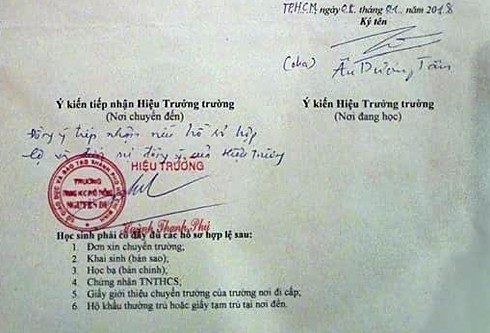 TP.HCM, ngày 08 tháng 01 năm 2018
Ký tên
(cha) Ấu Dương Tâm
Ý kiến tiếp nhận Hiệu Trưởng trường
(Nơi chuyển đến)
Ý kiến Hiệu Trưởng trường
(Nơi đang học)
Đồng ý tiếp nhận nếu hồ sơ hợp
lệ và được sự đồng ý của Hiệu Trưởng
HIỆU TRƯỞNG
TRƯỜNG
NGUYỄN DU
Huỳnh Thanh Phú
Học sinh phải có đầy đủ các hồ sơ hợp lệ sau:
1. Đơn xin chuyển trường;
2. Khai sinh (bản sao);
3. Học bạ (bản chính);
4. Chứng nhận TNTHCS;
5. Giấy giới thiệu chuyển trường của trường nơi đi cấp;
6. Hộ khẩu thường trú hoặc giấy tạm trú tại nơi đến.